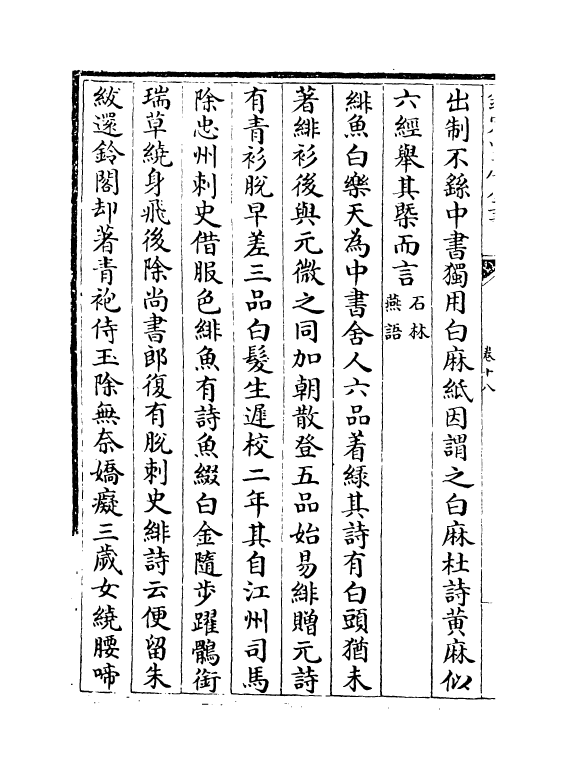 卷十八
出制不繇中書獨用白麻紙因謂之白麻杜詩黄麻似
六經舉其槩而言石林燕語
緋魚白樂天為中書舍人六品着緑其詩有白頭猶未
著緋衫後與元微之同加朝散登五品始易緋贈元詩
有青衫脱早差三品白髮生遲校二年其自江州司馬
除忠州刺史借服色緋魚有詩魚綴白金隨步躍鶻銜
瑞草繞身飛後除尚書郎復有脱刺史緋詩云便留朱
紱還鈴閣却著青袍侍玉除無奈嬌癡三歲女繞腰啼